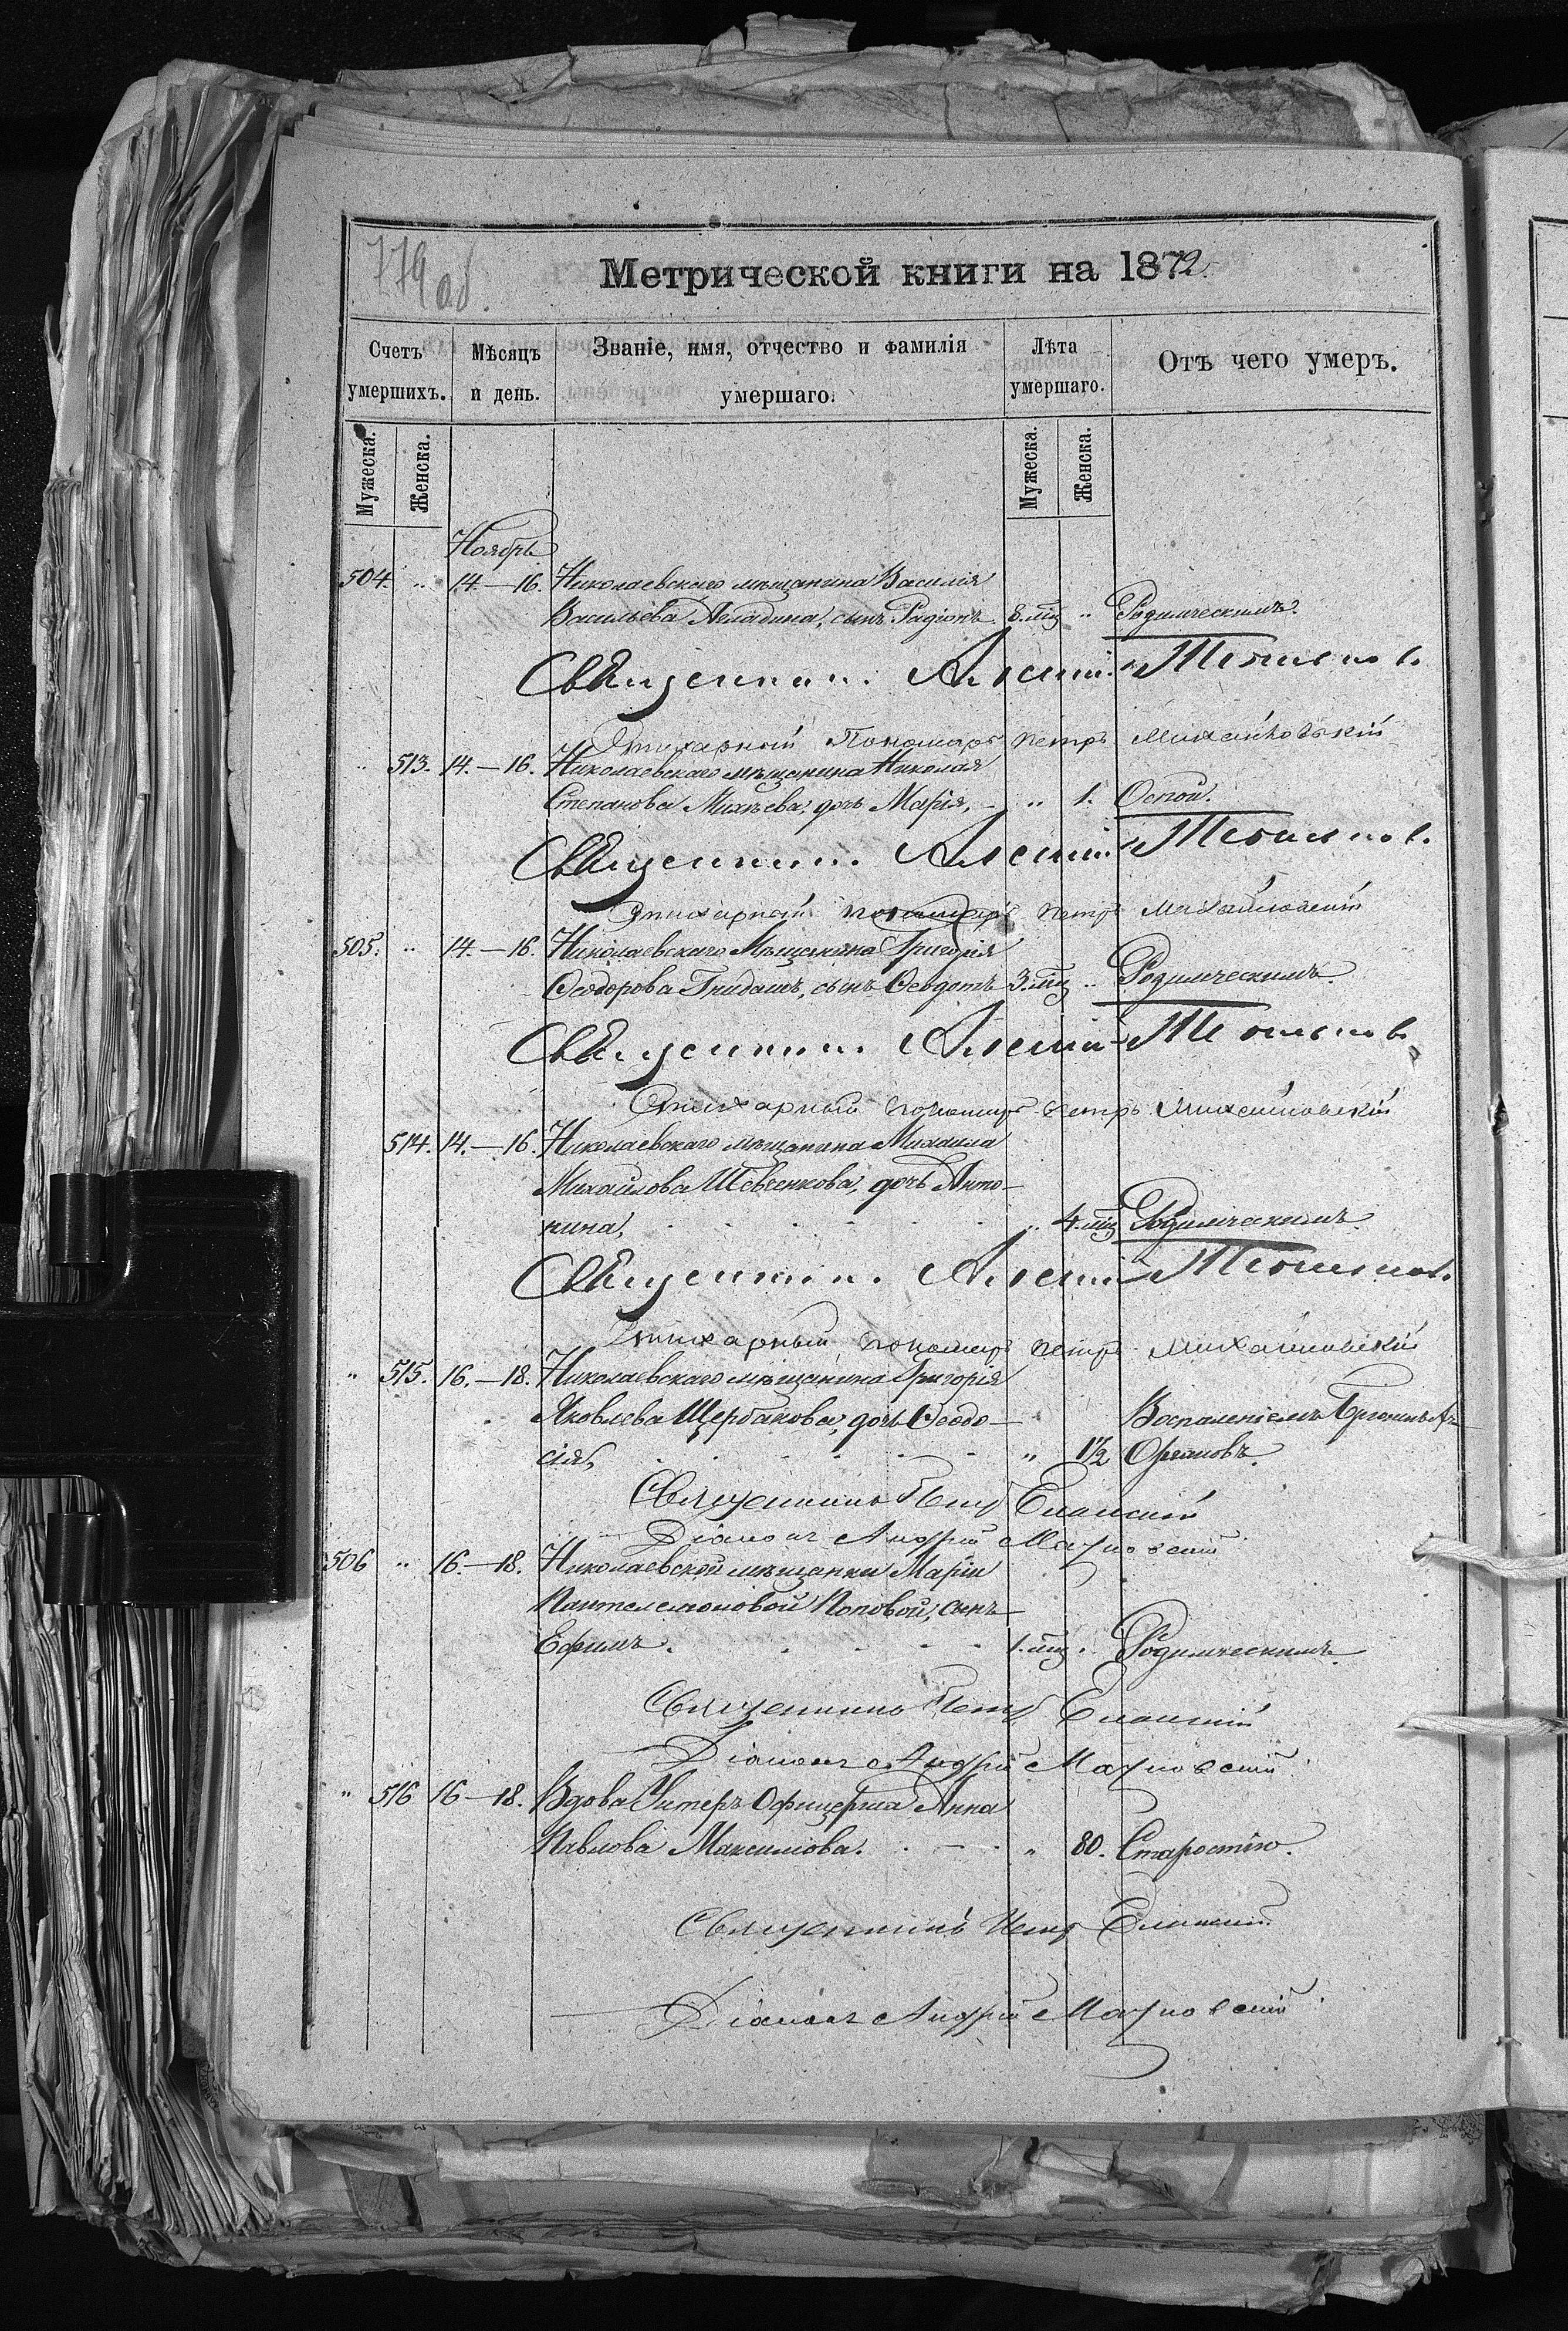 779 об.
Метрической книги на 1872
Счетъ умершихъ. Мѣсяцъ и день. Званіе, имя, отчество и фамилія умершаго. Лѣта умершаго. Отъ чего умеръ.
Мужеска. Женска. Мужеска. Женска.
Ноябрь
504. " 14.—16. Николаевскаго мѣщанина Василія
Васильева сынъ Радіонъ. 8. мц " Родимческимъ.
Священник Алексій
Стихарный Пономарь Петръ Михайловскій
" 513. 14.—16. Николаевскаго мѣщанина Николая
Степанова Михѣева, дочь Марія, " 1. Оспой.
Священник Алексій
Стихарный пономарь Петръ Михайловскій
505. " 14.—16. Николаевскаго Мѣщанина Григорія
Ѳеодорова Гнидашъ, сынъ Ѳеодотъ 3. мц " Родимческимъ.
Священник Алексій
Стихарный пономарь Петръ Михайловскій
514. 14.—16. Николаевскаго мѣщанина Михаила
Михайлова Шевченкова, дочь Анто-
нина, " 4. мц Родимческимъ.
Священник Алексій
Стихарный пономарь Петръ Михайловскій
" 515. 16.—18. Николаевскаго мѣщанина Григорія
Яковлева Щербакова, дочь Ѳеодо- Воспаленіемъ
сія, " 1½ Органовъ.
Священникъ Петръ Еланскій
Діаконъ Андрей
506 " 16.—18. Николаевской мѣщанки Маріи
Пантелеимоновой Поповой, сынъ
Ефимъ. 1. мц. Родимческимъ.
Священникъ Петръ Еланскій
Діаконъ Андрей
" 516 16—18. Вдова Унтеръ Офицерша Анна
Павлова Максимова. " 80. Старостію.
Священникъ Петръ Еланскій
Діаконъ Андрей